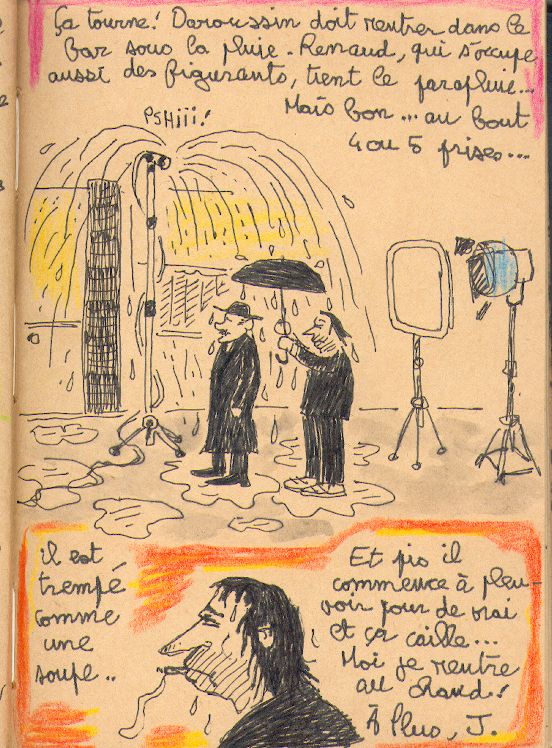 Ça tourne! Daroussin doit rentrer dans le
bar sous la pluie. Renaud, qui s'occupe
aussi des figurants, tient le parapluie...
Mais bon... au bout
4 ou 5 prises...
PSHiii!
il est
trempé
comme
une
soupe..
Et pis il
commence à pleu-
voir pour de vrai
et ça caille...
Moi je rentre
au chaud!
À Plus, J.